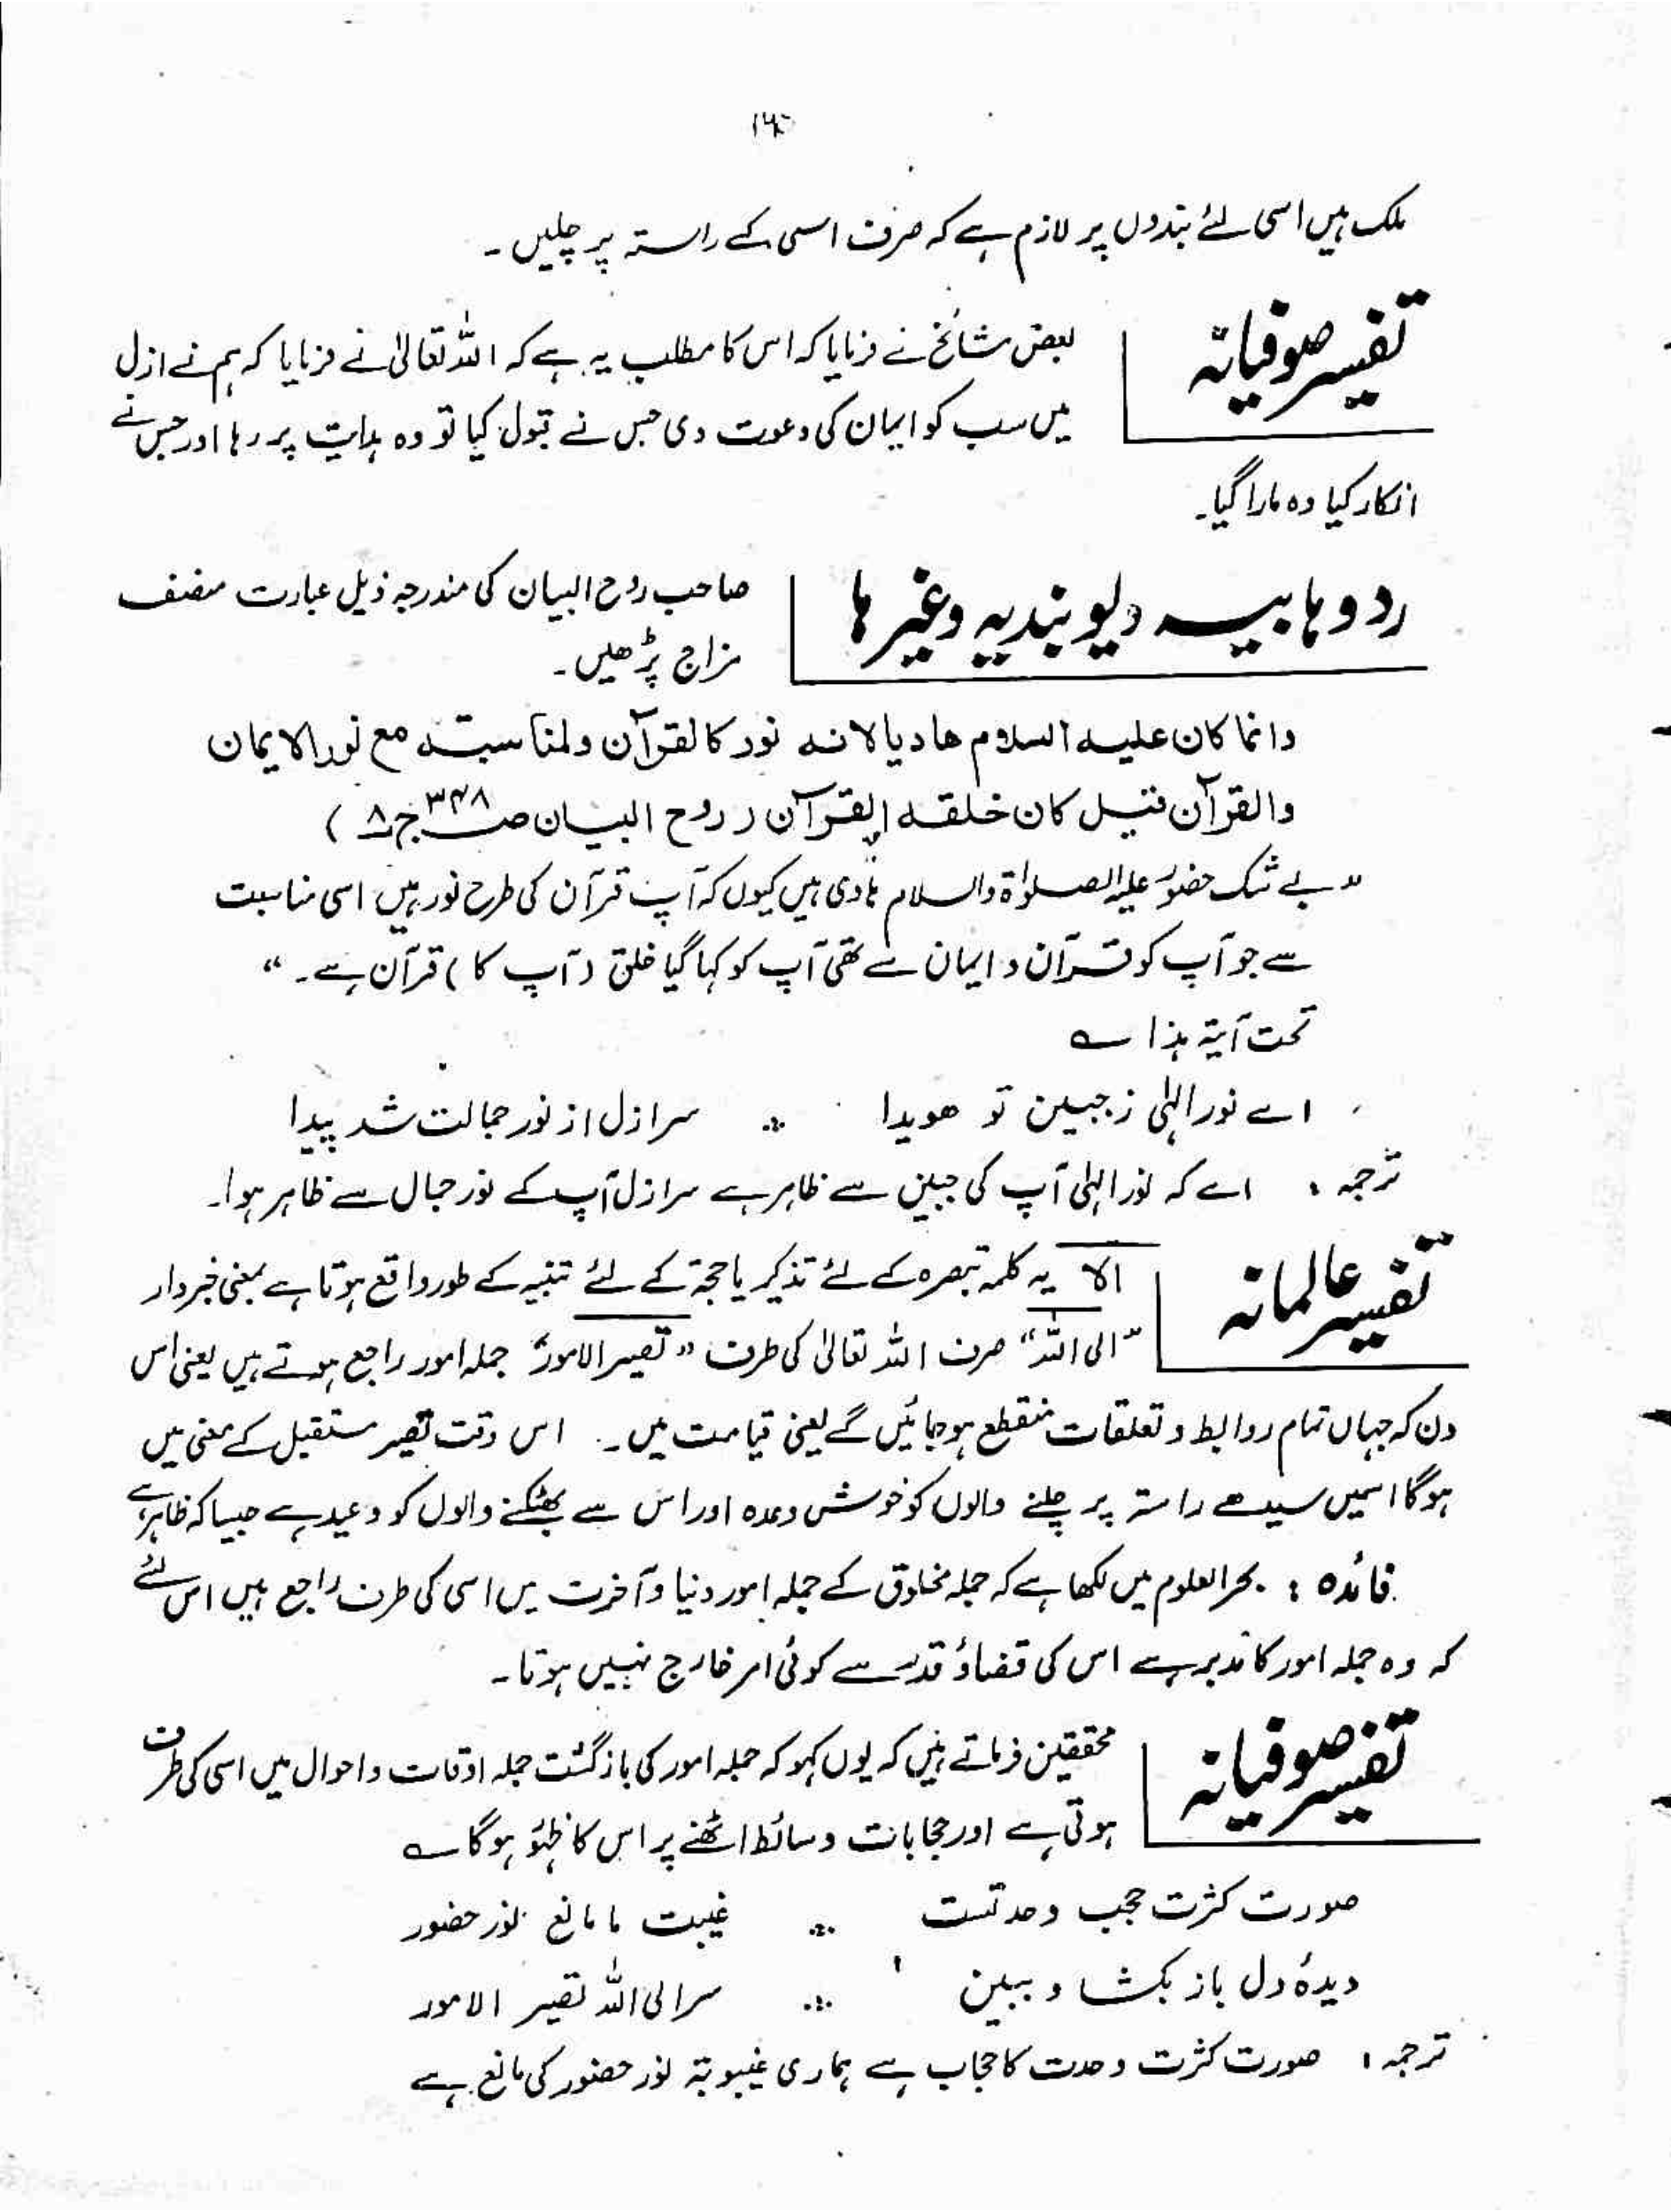 ملک ہیں اسی لئے بندوں پر لازم ہے کہ صرف اسی کے راستہ پر چلیں ۔
تفسیر صوفیانہ
بعض مشائخ نے فرمایا کہ اس کا مطلب یہ ہے کہ اللہ تعالیٰ نے فرمایا کہ ہم نے ازل
میں سب کو ایمان کی دعوت دی جس نے قبول کیا تو وہ ہدایت پر رہا اور جس نے
انکار کیا وہ مارا گیا۔
رد وہابیہ دیوبندیہ وغیرہا
صاحب روح البیان کی مندرجہ ذیل عبارت منصف
مزاج پڑھیں۔
وانما کان علیہ السلام ھادیا لانہ نور کالقرآن ولمناسبتہ مع نور الایمان
والقرآن قیل کان خلقہ القرآن ( روح البیان صـ ۳۴۸ ج ۸ )
" بے شک حضور علیہ الصلوٰۃ والسلام ہادی ہیں کیوں کہ آپ قرآن کی طرح نور ہیں اسی مناسبت
سے جو آپ کو قرآن و ایمان سے تھی آپ کو کہا گیا خلق ( آپ کا ) قرآن ہے۔ "
تحت آیۃ ہذا ؎
اے نور الٰہی ز جبین تو ھویدا ؞ سر ازل از نور جمالت شد پیدا
ترجمہ : اے کہ نور الٰہی آپ کی جبین سے ظاہر ہے سر ازل آپ کے نور جمال سے ظاہر ہوا۔
تفسیر عالمانہ
الا یہ کلمہ تبصرہ کے لئے تذکیر یا حجۃ کے لئے تنبیہ کے طور واقع ہوتا ہے بمعنی خبردار
"الی اللہ" صرف اللہ تعالیٰ کی طرف "تصیر الامور" جملہ امور راجع ہوتے ہیں یعنی اس
دن کہ جہاں تمام روابط و تعلقات منقطع ہو جائیں گے یعنی قیامت میں ۔ اس وقت تصیر مستقبل کے معنی میں
ہوگا اسمیں سیدھے راستہ پر چلنے والوں کو خوش وعدہ اور اس سے بھٹکنے والوں کو وعید ہے جیسا کہ ظاہر ہے
فائدہ : بحر العلوم میں لکھا ہے کہ جملہ مخلوق کے جملہ امور دنیا و آخرت میں اسی کی طرف راجع ہیں اس لئے
کہ وہ جملہ امور کا مدبر ہے اس کی قضاؤ قدر سے کوئی امر خارج نہیں ہوتا۔
تفسیر صوفیانہ
محققین فرماتے ہیں کہ یوں کہو کہ جملہ امور کی بازگشت جملہ اوقات و احوال میں اسی کی طرف
ہوتی ہے اور حجابات وسائط اٹھنے پر اس کا ظہور ہوگا ؎
صورت کثرت حجب وحدتست ؞ غیبت ما مانع نور حضور
دیدۂ دل باز بکشا و ببین ؞ سر الی اللہ تصیر الامور
ترجمہ : صورت کثرت وحدت کا حجاب ہے ہماری غیبوبۃ نور حضور کی مانع ہے